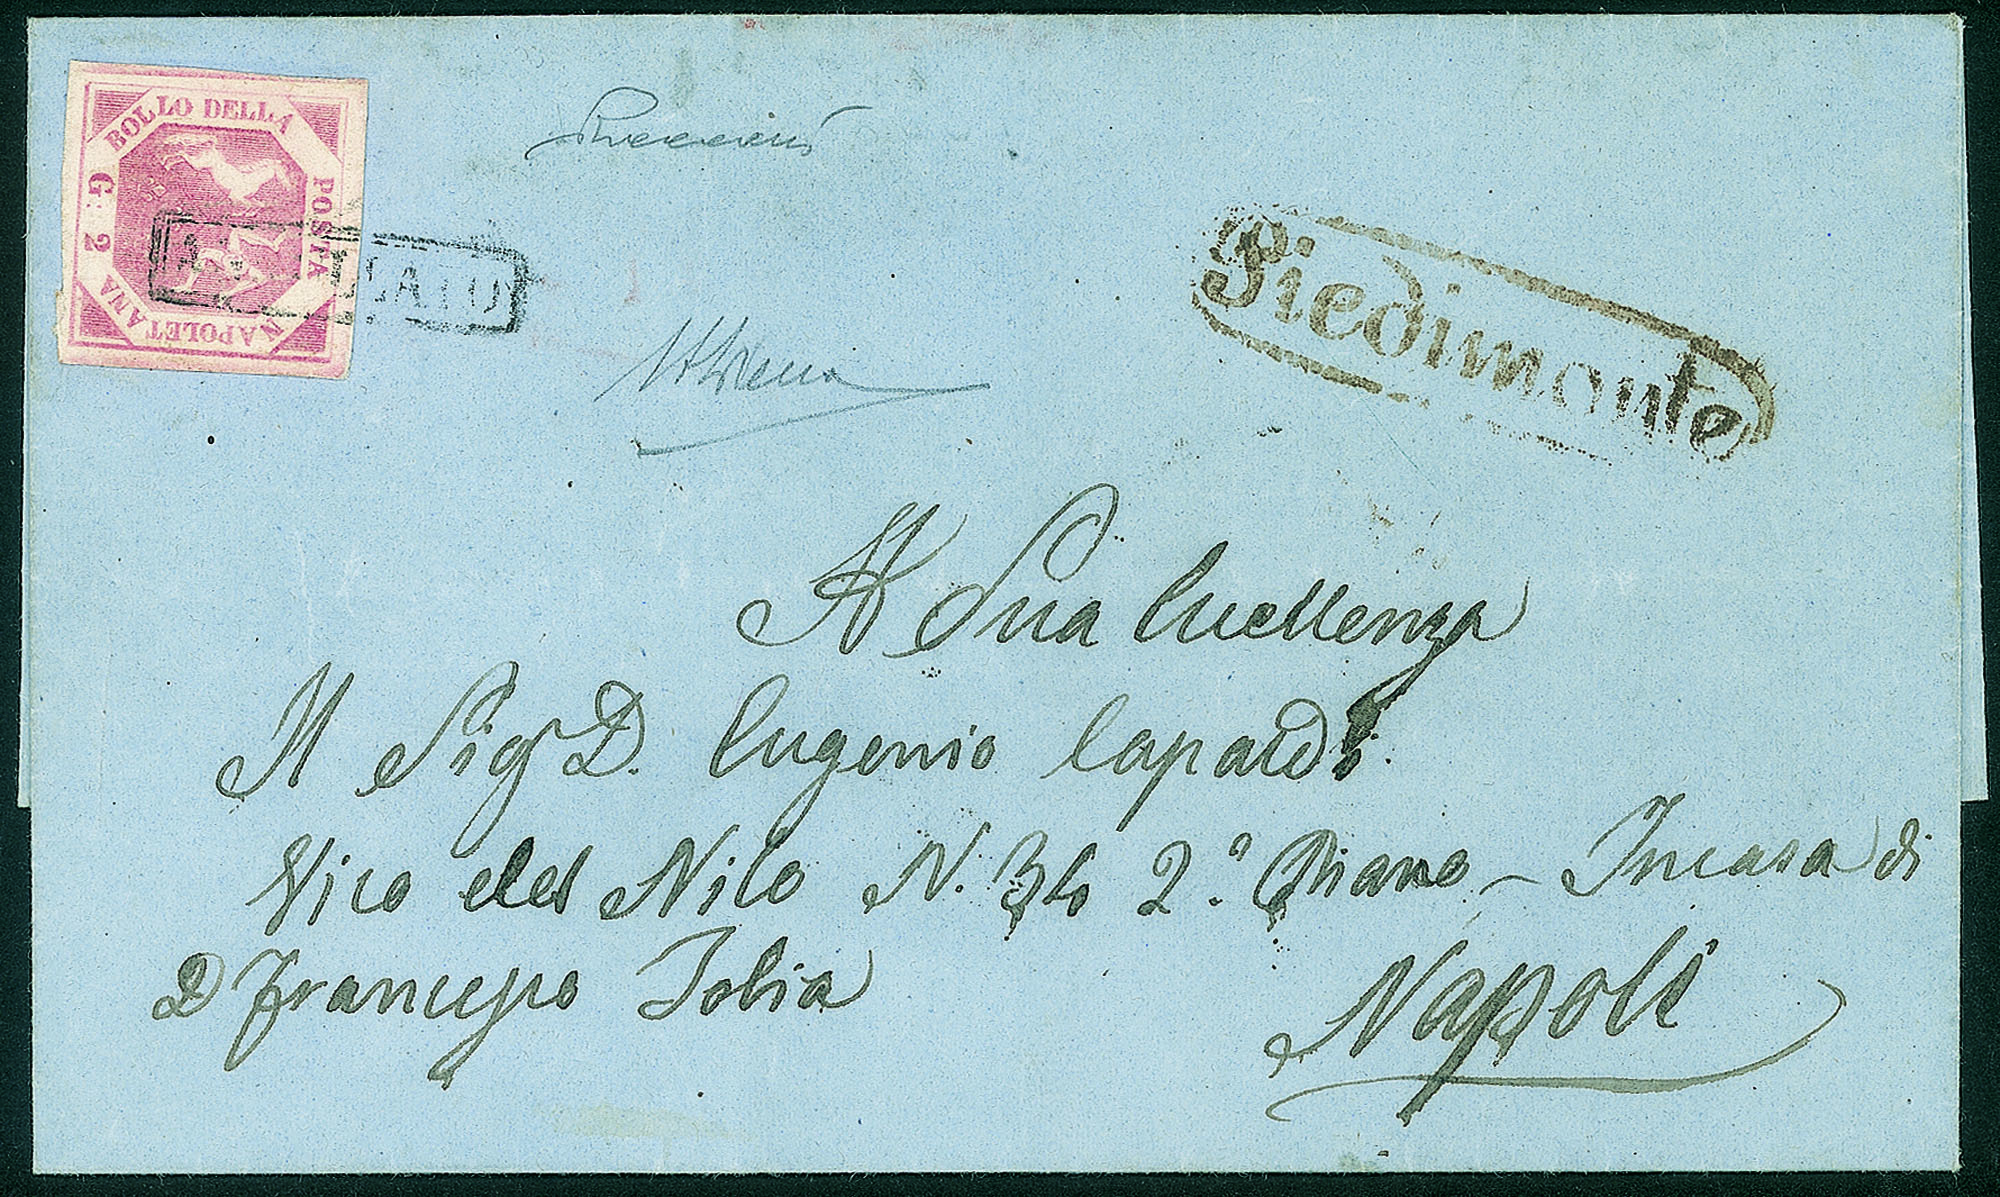 BOLLO DELLA
POSTA
NAPOLETANA
G. 2
ANNULLATO
Piedimonte
A Sua Eccellenza
Il Sig D. Eugenio Capardi
Vico del Nilo N. 34 2.° Piano - Incasa di
D Francesco Tolia
Napoli